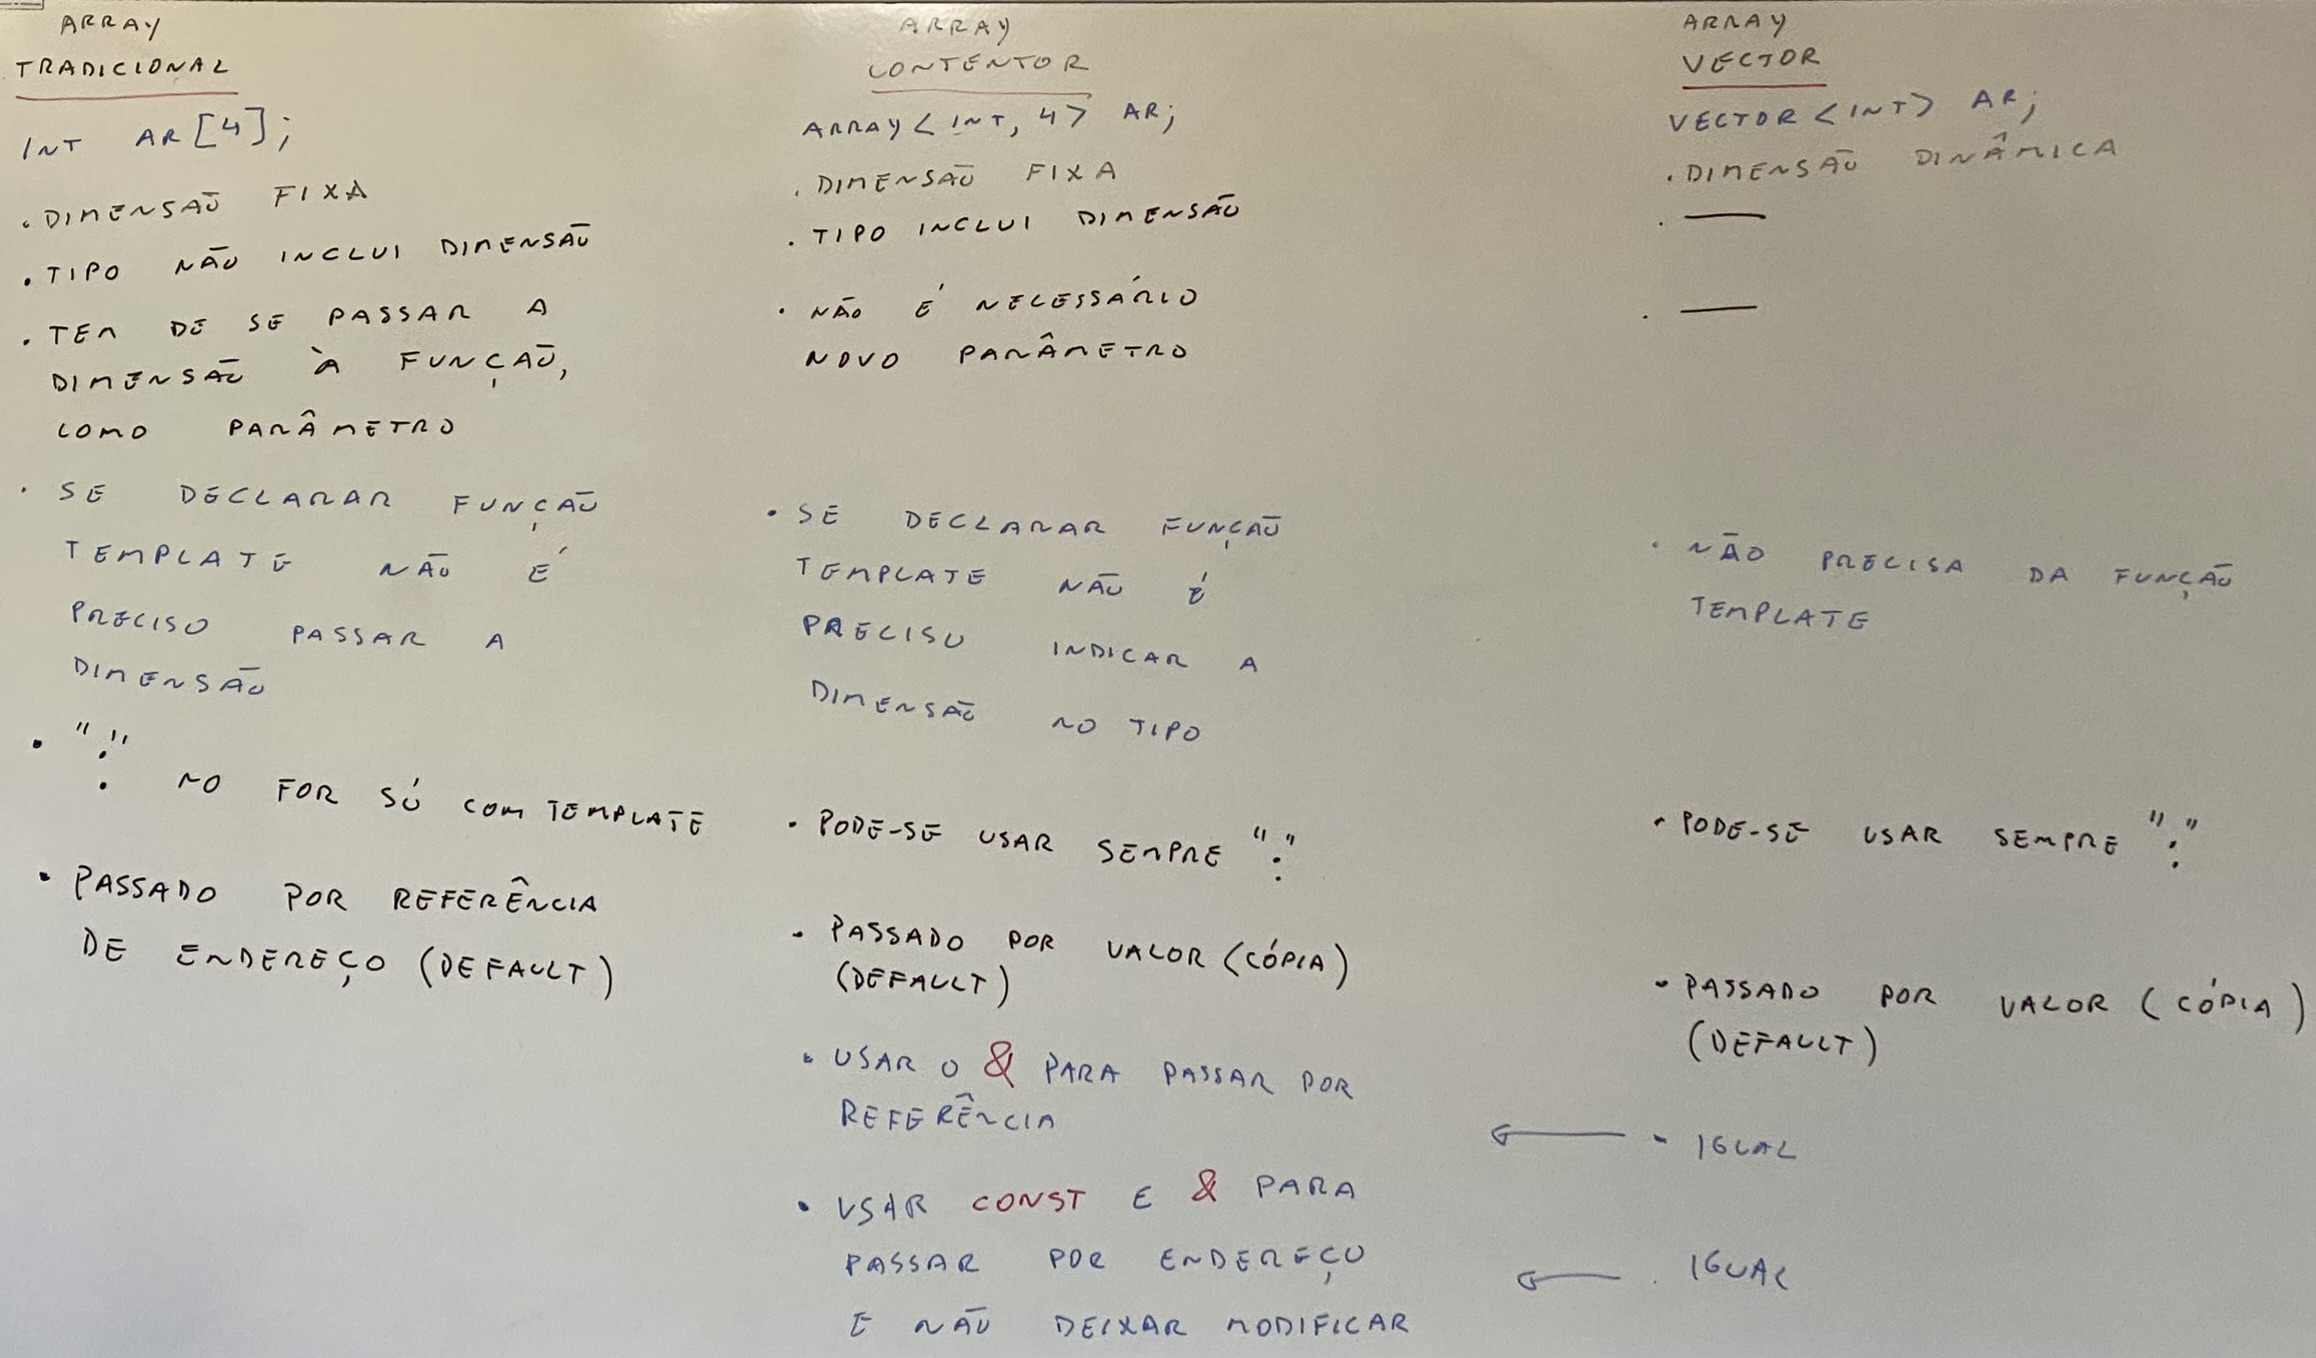 ARRAY
TRADICIONAL
INT AR[4];
. DIMENSÃO FIXA
. TIPO NÃO INCLUI DIMENSÃO
. TEM DE SE PASSAR A
DIMENSÃO À FUNÇÃO,
COMO PARÂMETRO
. SE DECLARAR FUNÇÃO
TEMPLATE NÃO É
PRECISO PASSAR A
DIMENSÃO
. ":" NO FOR SÓ COM TEMPLATE
. PASSADO POR REFERÊNCIA
DE ENDEREÇO (DEFAULT)
ARRAY
CONTENTOR
ARRAY<INT, 4> AR;
. DIMENSÃO FIXA
. TIPO INCLUI DIMENSÃO
. NÃO É NECESSÁRIO
NOVO PARÂMETRO
. SE DECLARAR FUNÇÃO
TEMPLATE NÃO É
PRECISO INDICAR A
DIMENSÃO NO TIPO
. PODE-SE USAR SEMPRE ":"
. PASSADO POR VALOR (CÓPIA)
(DEFAULT)
. USAR O & PARA PASSAR POR
REFERÊNCIA
. USAR CONST E & PARA
PASSAR POR ENDEREÇO
E NÃO DEIXAR MODIFICAR
ARRAY
VECTOR
VECTOR<INT> AR;
. DIMENSÃO DINÂMICA
. —
. —
. NÃO PRECISA DA FUNÇÃO
TEMPLATE
. PODE-SE USAR SEMPRE ":"
. PASSADO POR VALOR (CÓPIA)
(DEFAULT)
← . IGUAL
← . IGUAL